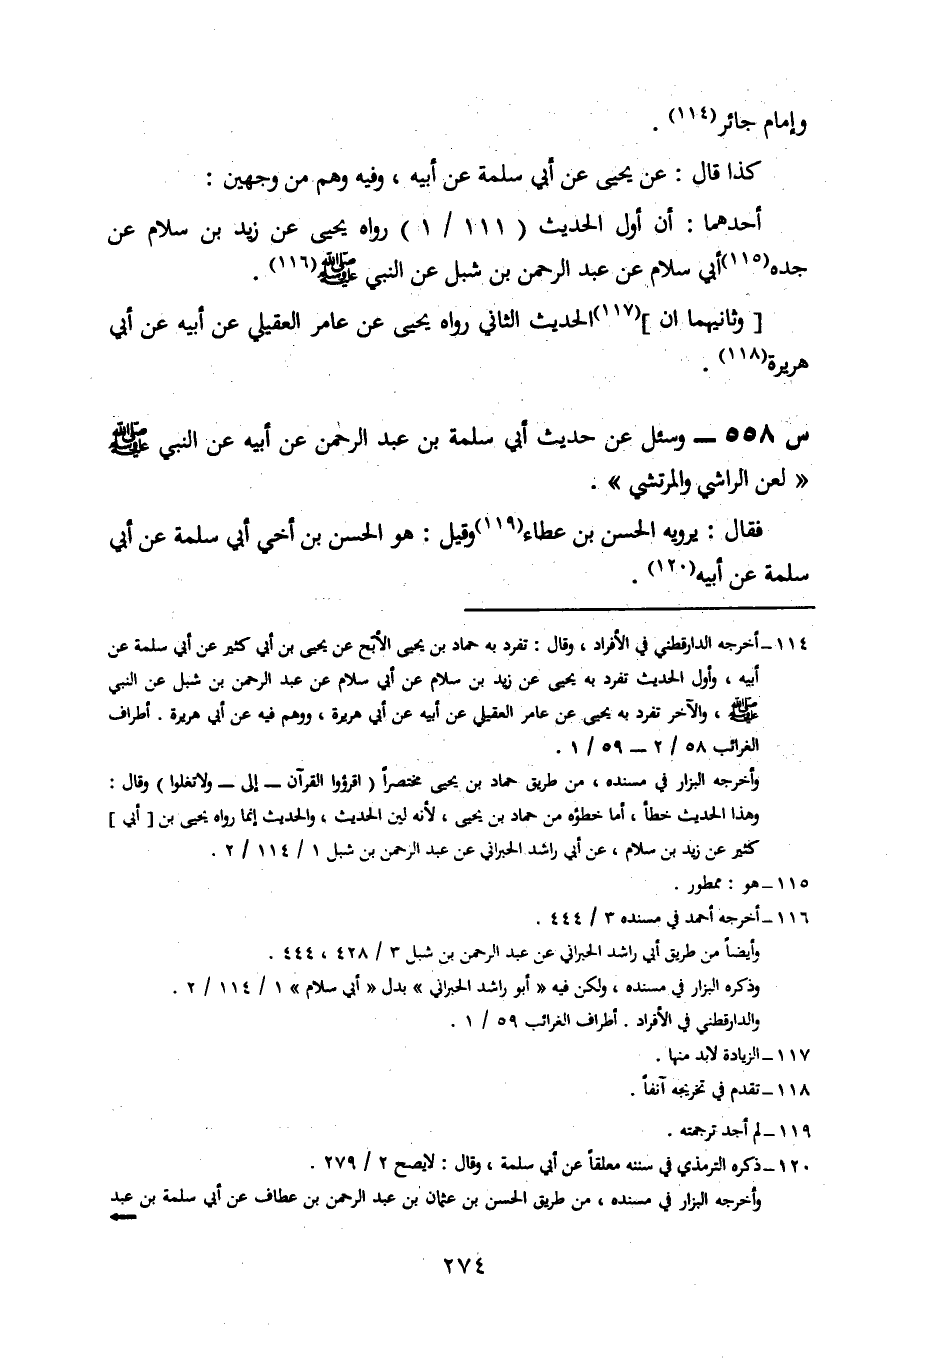 وإمام جائر(١١٤) .
كذا قال : عن يحيى عن أبي سلمة عن أبيه ، وفيه وهم من وجهين :
أحدهما : أن أول الحديث ( ١١١ / ١ ) رواه يحيى عن زيد بن سلام عن
جده(١١٥)أبي سلام عن عبد الرحمن بن شبل عن النبي ﷺ(١١٦) .
[ وثانيهما ان ](١١٧)الحديث الثاني رواه يحيى عن عامر العقيلي عن أبيه عن أبي
هريرة(١١٨) .
س ٥٥٨ ــ وسئل عن حديث أبي سلمة بن عبد الرحمن عن أبيه عن النبي ﷺ
« لعن الراشي والمرتشي » .
فقال : يرويه الحسن بن عطاء(١١٩)وقيل : هو الحسن بن أخي أبي سلمة عن أبي
سلمة عن أبيه(١٢٠) .
١١٤ــ أخرجه الدارقطني في الأفراد ، وقال : تفرد به حماد بن يحيى الأبّح عن يحيى بن أبي كثير عن أبي سلمة عن
أبيه ، وأول الحديث تفرد به يحيى عن زيد بن سلام عن أبي سلام عن عبد الرحمن بن شبل عن النبي
ﷺ ، والآخر تفرد به يحيى عن عامر العقيلي عن أبيه عن أبي هريرة ، ووهم فيه عن أبي هريرة . أطراف
الغرائب ٥٨ / ٢ ــ ٥٩ / ١ .
وأخرجه البزار في مسنده ، من طريق حماد بن يحيى مختصراً ( اقرؤوا القرآن ــ إلى ــ ولاتغلوا ) وقال :
وهذا الحديث خطأ ، أما خطؤه من حماد بن يحيى ، لأنه لين الحديث ، والحديث إنما رواه يحيى بن [ أبي ]
كثير عن زيد بن سلام ، عن أبي راشد الحبراني عن عبد الرحمن بن شبل ١ / ١١٤ / ٢ .
١١٥ــ هو : ممطور .
١١٦ــ أخرجه أحمد في مسنده ٣ / ٤٤٤ .
وأيضاً من طريق أبي راشد الحبراني عن عبد الرحمن بن شبل ٣ / ٤٢٨ ، ٤٤٤ .
وذكره البزار في مسنده ، ولكن فيه « أبو راشد الحبراني » بدل « أبي سلام » ١ / ١١٤ / ٢ .
والدارقطني في الأفراد . أطراف الغرائب ٥٩ / ١ .
١١٧ــ الزيادة لابد منها .
١١٨ــ تقدم في تخريجه آنفاً .
١١٩ــ لم أجد ترجمته .
١٢٠ــ ذكره الترمذي في سننه معلقاً عن أبي سلمة ، وقال : لايصح ٢ / ٢٧٩ .
وأخرجه البزار في مسنده ، من طريق الحسن بن عثمان بن عبد الرحمن بن عطاف عن أبي سلمة بن عبد
٢٧٤